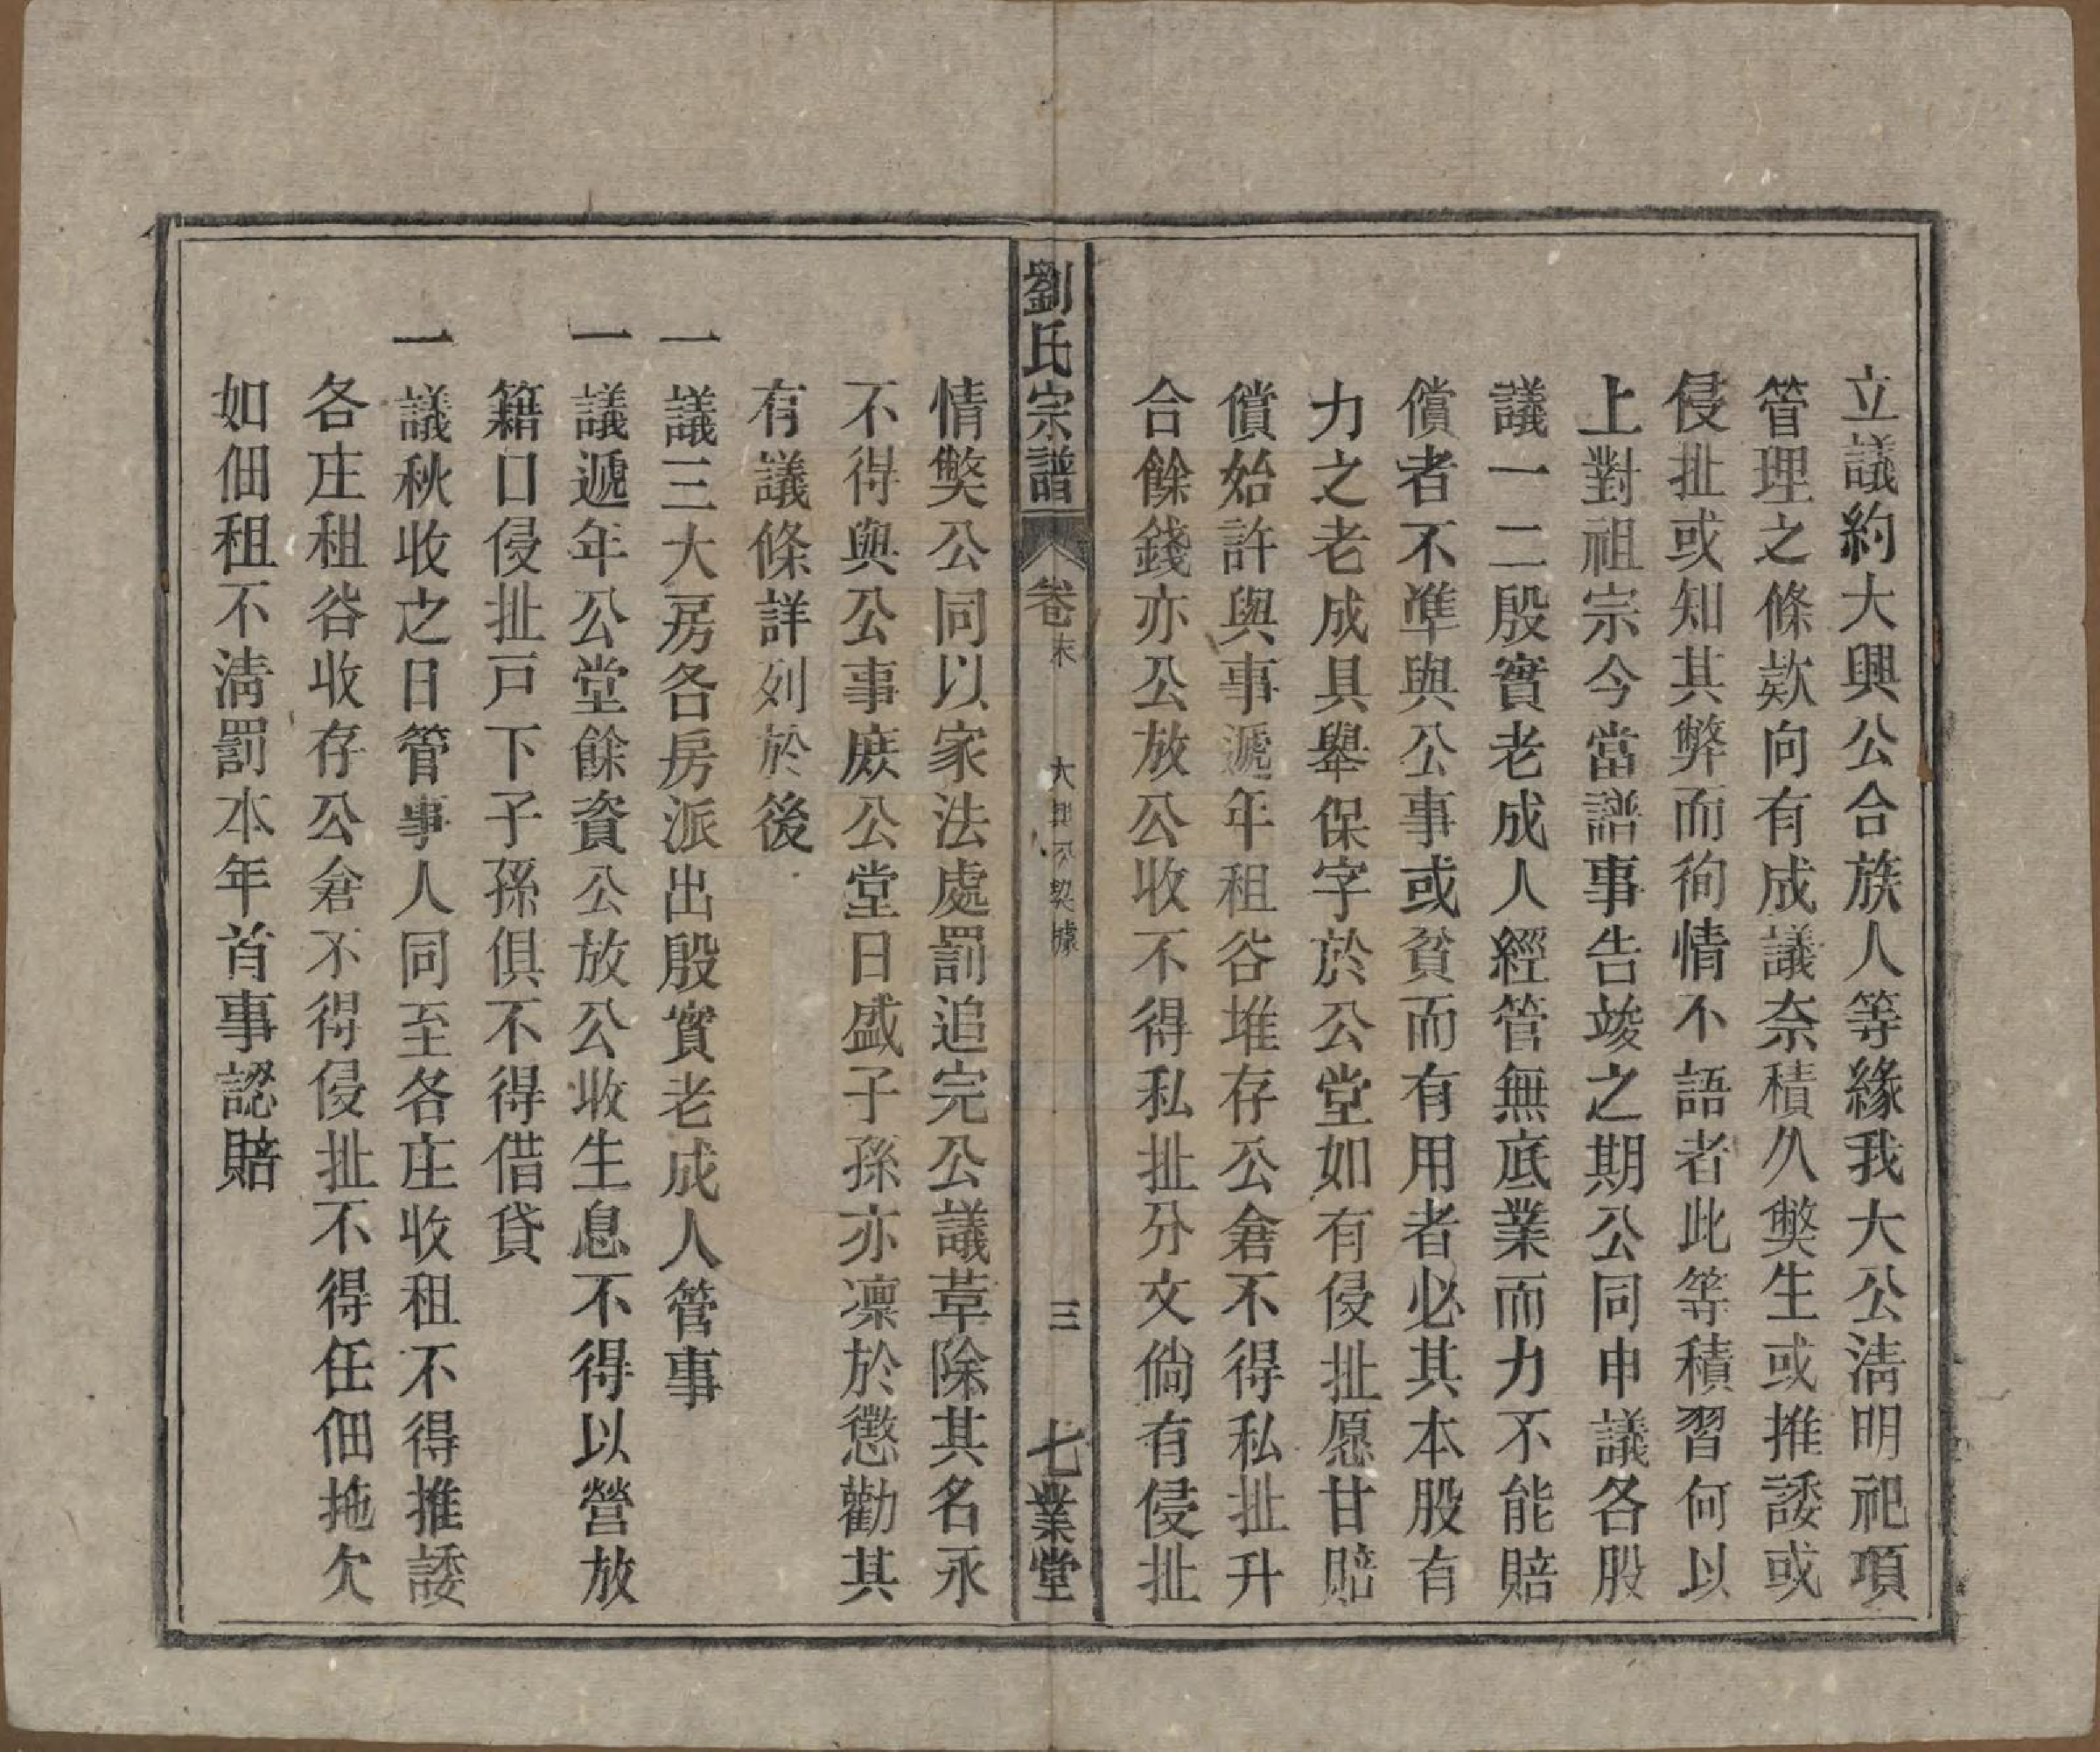 立議約大興公合族人等緣我大公清明祀項
管理之條欵向有成議奈積久獘生或推諉或
侵扯或知其弊而徇情不語者此等積習何以
上對祖宗今當譜事告竣之期公同申議各股
議一二殷實老成人經管無底業而力不能賠
償者不準與公事或貧而有用者必其本股有
力之老成具舉保字於公堂如有侵扯愿甘賠
償始許與事遞年租谷堆存公倉不得私扯升
合餘錢亦公放公收不得私扯分文倘有侵扯
劉氏宗譜 卷末 大興公契據 三 七業堂
情獘公同以家法處罰追完公議革除其名永
不得與公事庶公堂日盛子孫亦凜於懲勸其
有議條詳列於後
一議三大房各房派出殷實老成人管事
一議遞年公堂餘資公放公收生息不得以營放
籍口侵扯戸下子孫俱不得借貸
一議秋收之日管事人同至各庄收租不得推諉
各庄租谷收存公倉不得侵扯不得任佃拖欠
如佃租不清罰本年首事認賠